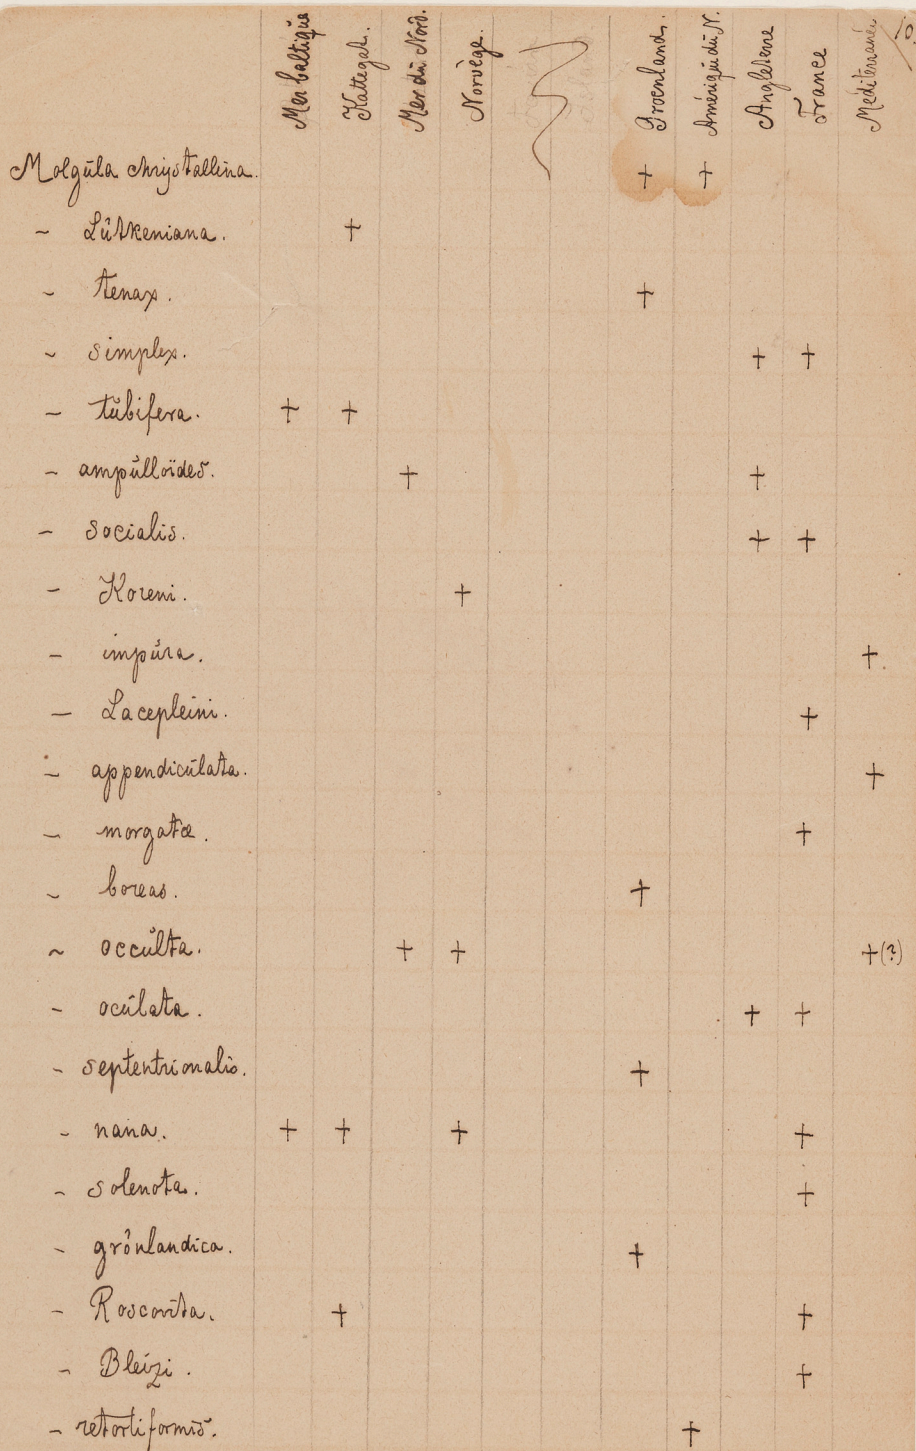 Mer baltique Kattegat. Mer du Nord. Norvège. Groenland. Amérique du N. Angleterre France Méditerranée
Molgula chrystallina. + +
- Lütkeniana. +
- tenax. +
- simplex. + +
- tubifera. + +
- ampulloïdes. + +
- socialis. + +
- Koreni. +
- impura. +.
- Lacepleini. +
- appendiculata. +
- morgatæ. +
- boreas. +
- occulta. + + +(?)
- oculata. + +
- septentrionalis. +
- nana. + + + +
- solenota. +
- grönlandica. +
- Roscovita. + +
- Bleizi. +
- retortiformis. +